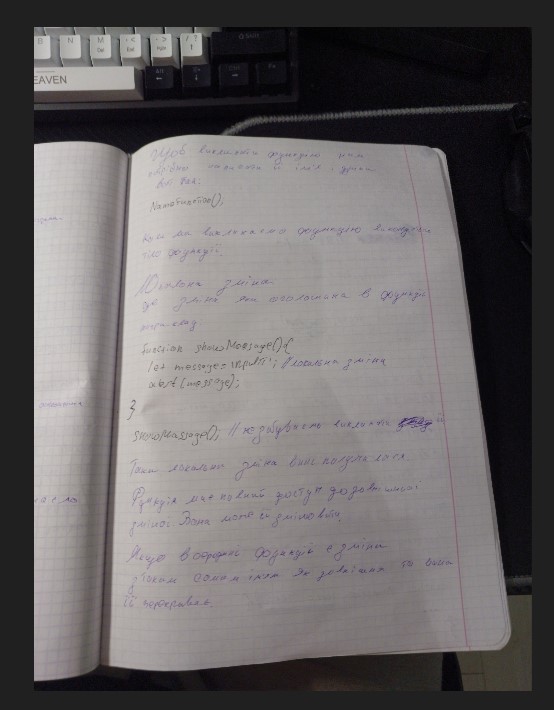 B N M < > ?
Shift
EAVEN
Alt Fn Ctrl
Щоб викликати функцію нам
написати її ім'я і дужки
NameFunction();
Коли ми викликаємо функцію виконується
тіло функції.
Локальна зміна
Це зміна яка оголошина в функції
наприклад
function showMessage(){
let message = ; // локальна зміна
alert (message);
}
showMessage(); // не забуваємо викликати її
Така локальна зміна
Функція має повний доступ до зовнішньої
змінної. Вона може її змінювати.
Якщо в середині функції є зміна
з таким самим ім'ям як зовнішня то вона
її перекриває.